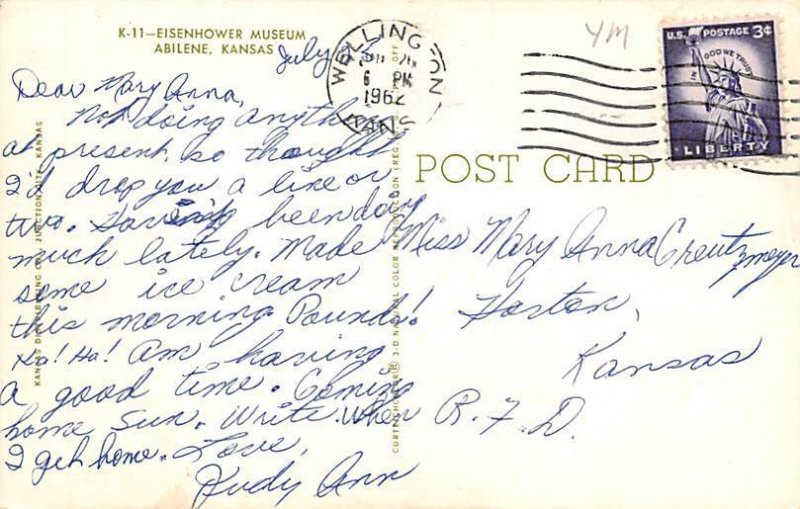 K-11—EISENHOWER MUSEUM
ABILENE, KANSAS
July
Dear Mary Anna,
Not doing anything
at present, so thought
I'd drop you a line or
two. Haven't been doing
much lately. Made
some ice cream
this morning Pounds!
Ha! Ha! Am having
a good time. Coming
home Sun. Write. When
I get home. Love,
Judy Ann
KANSAS DISTRIBUTING CO., JUNCTION CITY, KANSAS
3-D NATURAL COLOR REPRODUCTION (REG.
WELLINGTON
6 PM
1962
KANS
YM
U.S. POSTAGE 3¢
IN GOD WE TRUST
LIBERTY
POST CARD
Miss Mary Anna Creutzmeyer
Horton,
Kansas
R.F.D.